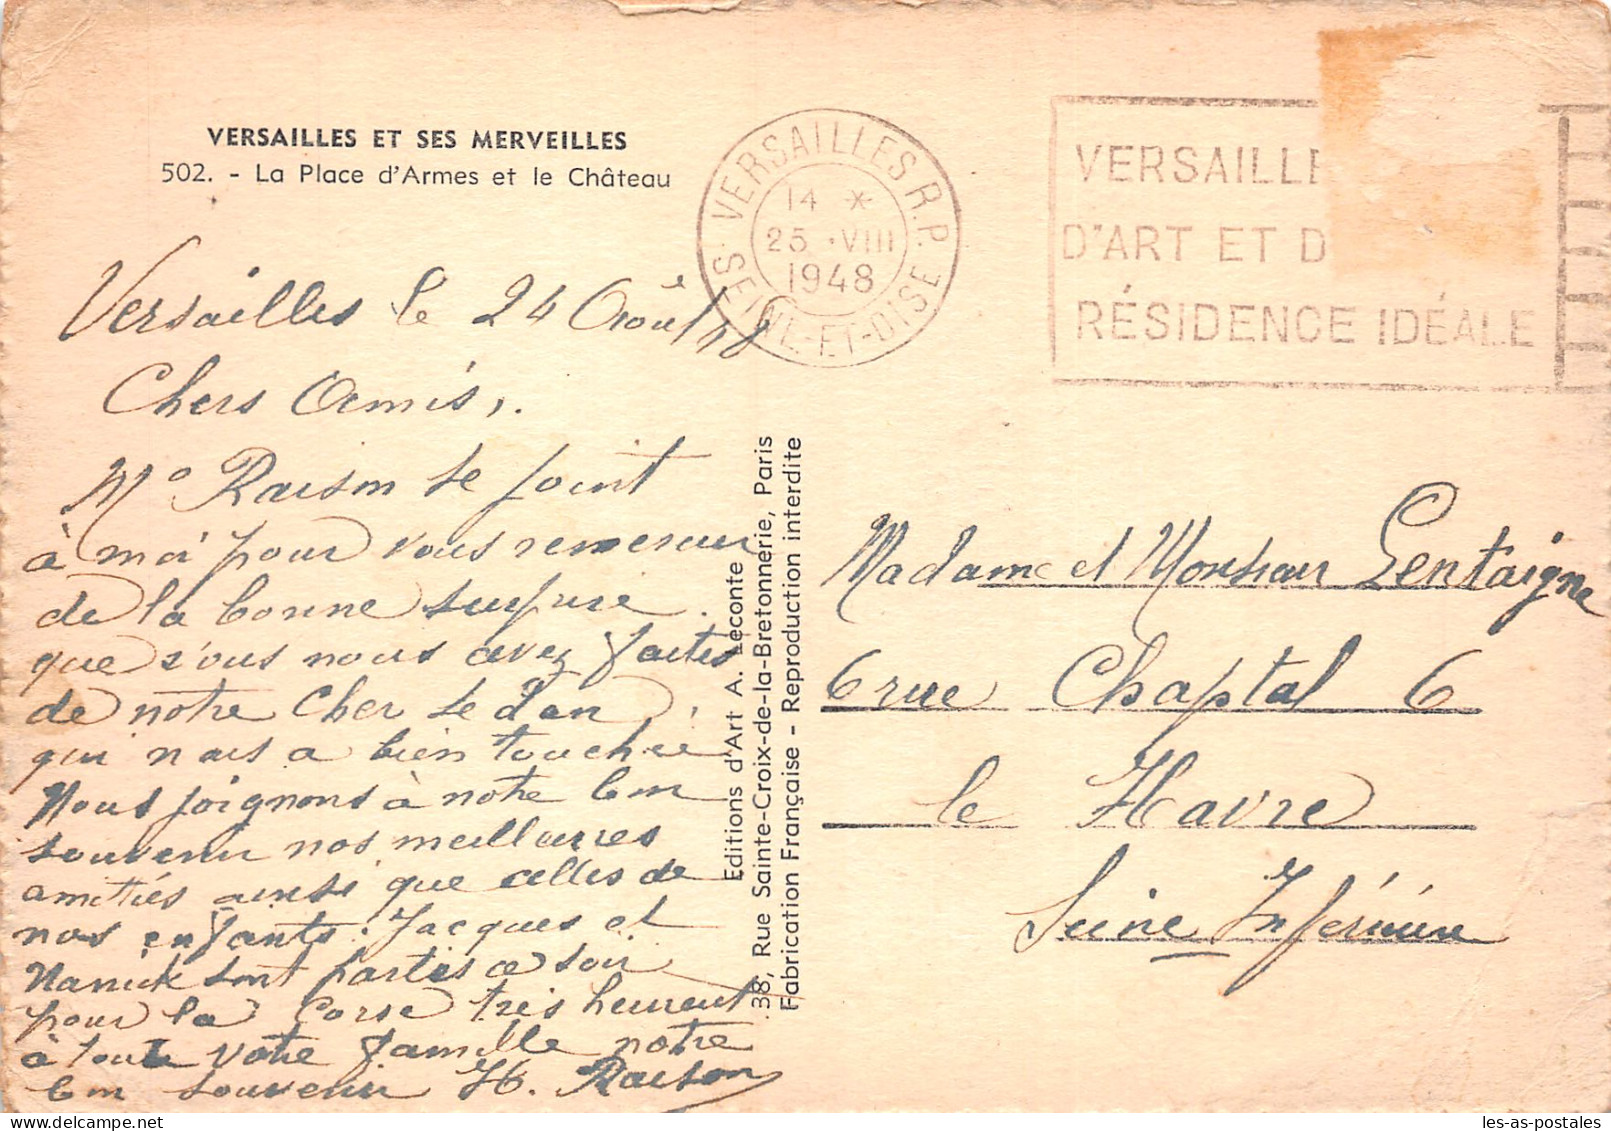 VERSAILLES ET SES MERVEILLES
502. - La Place d'Armes et le Château
VERSAILLES R.P.
14 *
25 • VIII
1948
SEINE-ET-OISE
VERSAILLE
D'ART ET D
RÉSIDENCE IDÉALE
Versailles le 24 Août 48
Chers Amis,.
Mº Raison se joint
à moi pour vous
de la bonne surprise
que vous nous avez faites
de notre Cher Sedan
qui nous a bien touché
Nous joignons à notre bon
souvenir nos meilleures
amitiés ainsi que celles de
nos enfants. Jacques et
Nanick sont partis ce soir
pour la Corse très heureux
à toute votre famille notre
bon souvenir H. Raison
Editions d'Art A. Leconte
38, Rue Sainte-Croix-de-la-Bretonnerie, Paris
Fabrication Française - Reproduction interdite
Madame et Monsieur Lentaigne
6 rue Chaptal 6
le Havre
Seine Inférieure
les-as-postales